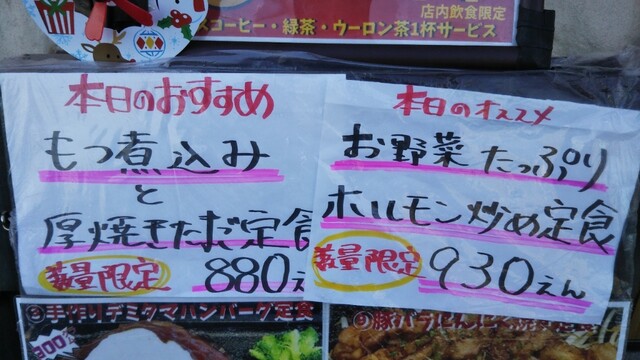 店内飲食限定
スコーヒー・緑茶・ウーロン茶1杯サービス
本日のおすすめ
もつ煮込み
と
厚焼きたまご定食
数量限定
880え
本日のオススメ
お野菜たっぷり
ホルモン炒め定食
数量限定
930えん
手作りデミタマハンバーグ定食
300